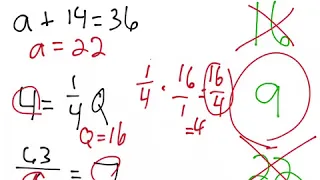 a + 14 = 36
a = 22
4 = 1/4 Q
Q = 16
1/4 · 16/1 = 16/4
= 4
63/ = 7
16
9
22